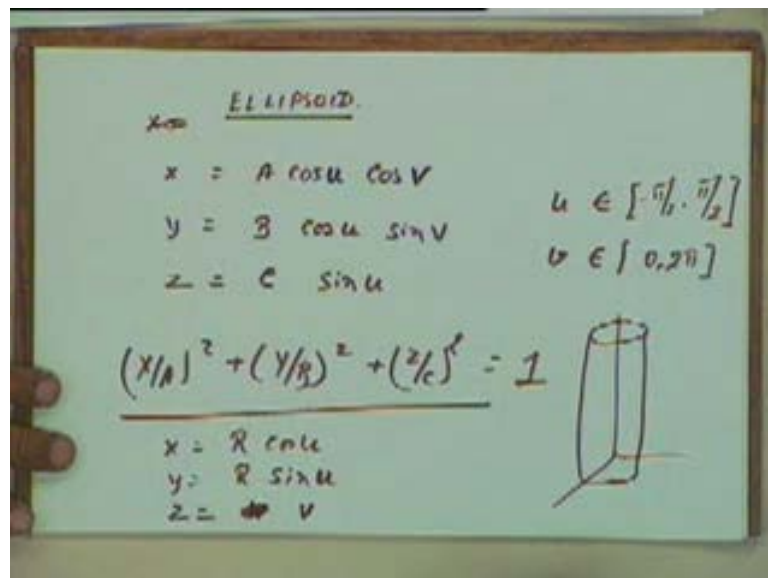 ELLIPSOID.
x = A cosu cosv
y = B cosu sinv
z = C sinu
u ∈ [-π/2, π/2]
v ∈ [0, 2π]
(x/A)² + (y/B)² + (z/C)² = 1
x = R cosu
y = R sinu
z = v